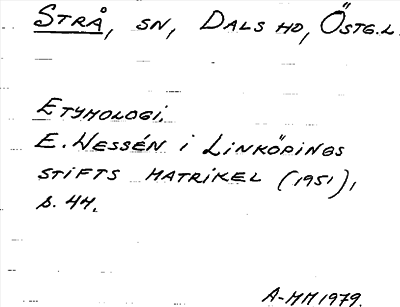 STRÅ, SN, DALS HD, ÖSTG.L.
ETYMOLOGI.
E. WESSÉN i LINKÖPINGS
STIFTS MATRIKEL (1951),
s. 44.
A-MM 1979.